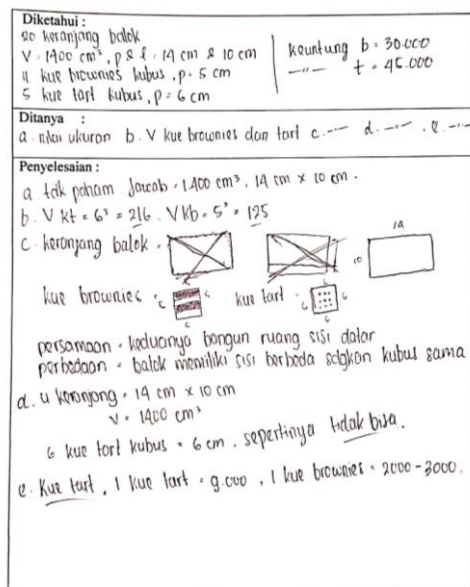 Diketahui :
20 keranjang balok
V = 1400 cm³, p & l = 14 cm & 10 cm
4 kue brownies kubus, p = 5 cm
5 kue tart kubus, p = 6 cm
keuntung b = 30.000
—"— t = 45.000
Ditanya :
a. nilai ukuran b. V kue brownies dan tart c. —"— d. —"— . e. —"—
Penyelesaian :
a tdk paham Jawab = 1400 cm³. 14 cm x 10 cm.
b. V kt = 6³ = 216 . V kb = 5³ = 125
c. keranjang balok =
14
10
kue brownies =
kue tart =
6
6
persamaan = keduanya bangun ruang sisi datar
perbedaan = balok memiliki sisi berbeda sdgkan kubus sama
d. 4 keranjang = 14 cm x 10 cm
V = 1400 cm³
6 kue tart kubus = 6 cm . sepertinya tidak bisa.
e. kue tart, 1 kue tart = 9.000, 1 kue brownies = 2000 - 3000.